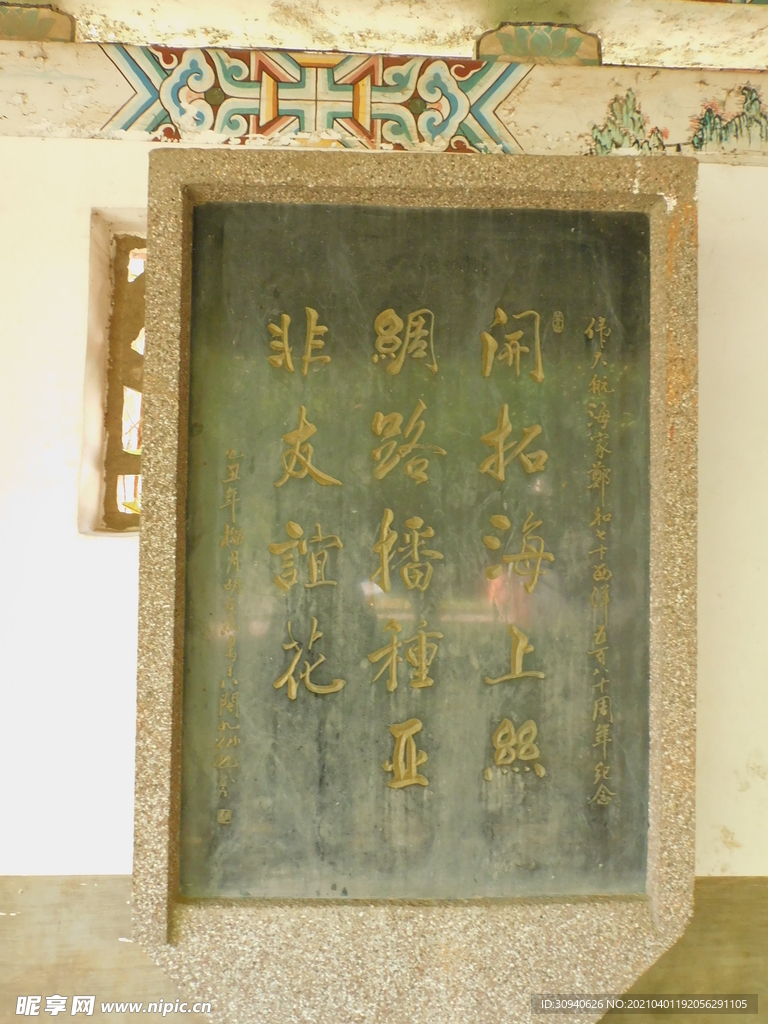 伟大航海家鄭和七下西洋五百八十周年纪念
開拓海上絲
綢路播種亚
非友誼花
乙丑年
昵享网 www.nipic.cn
ID:30940626 NO:20210401192056291105